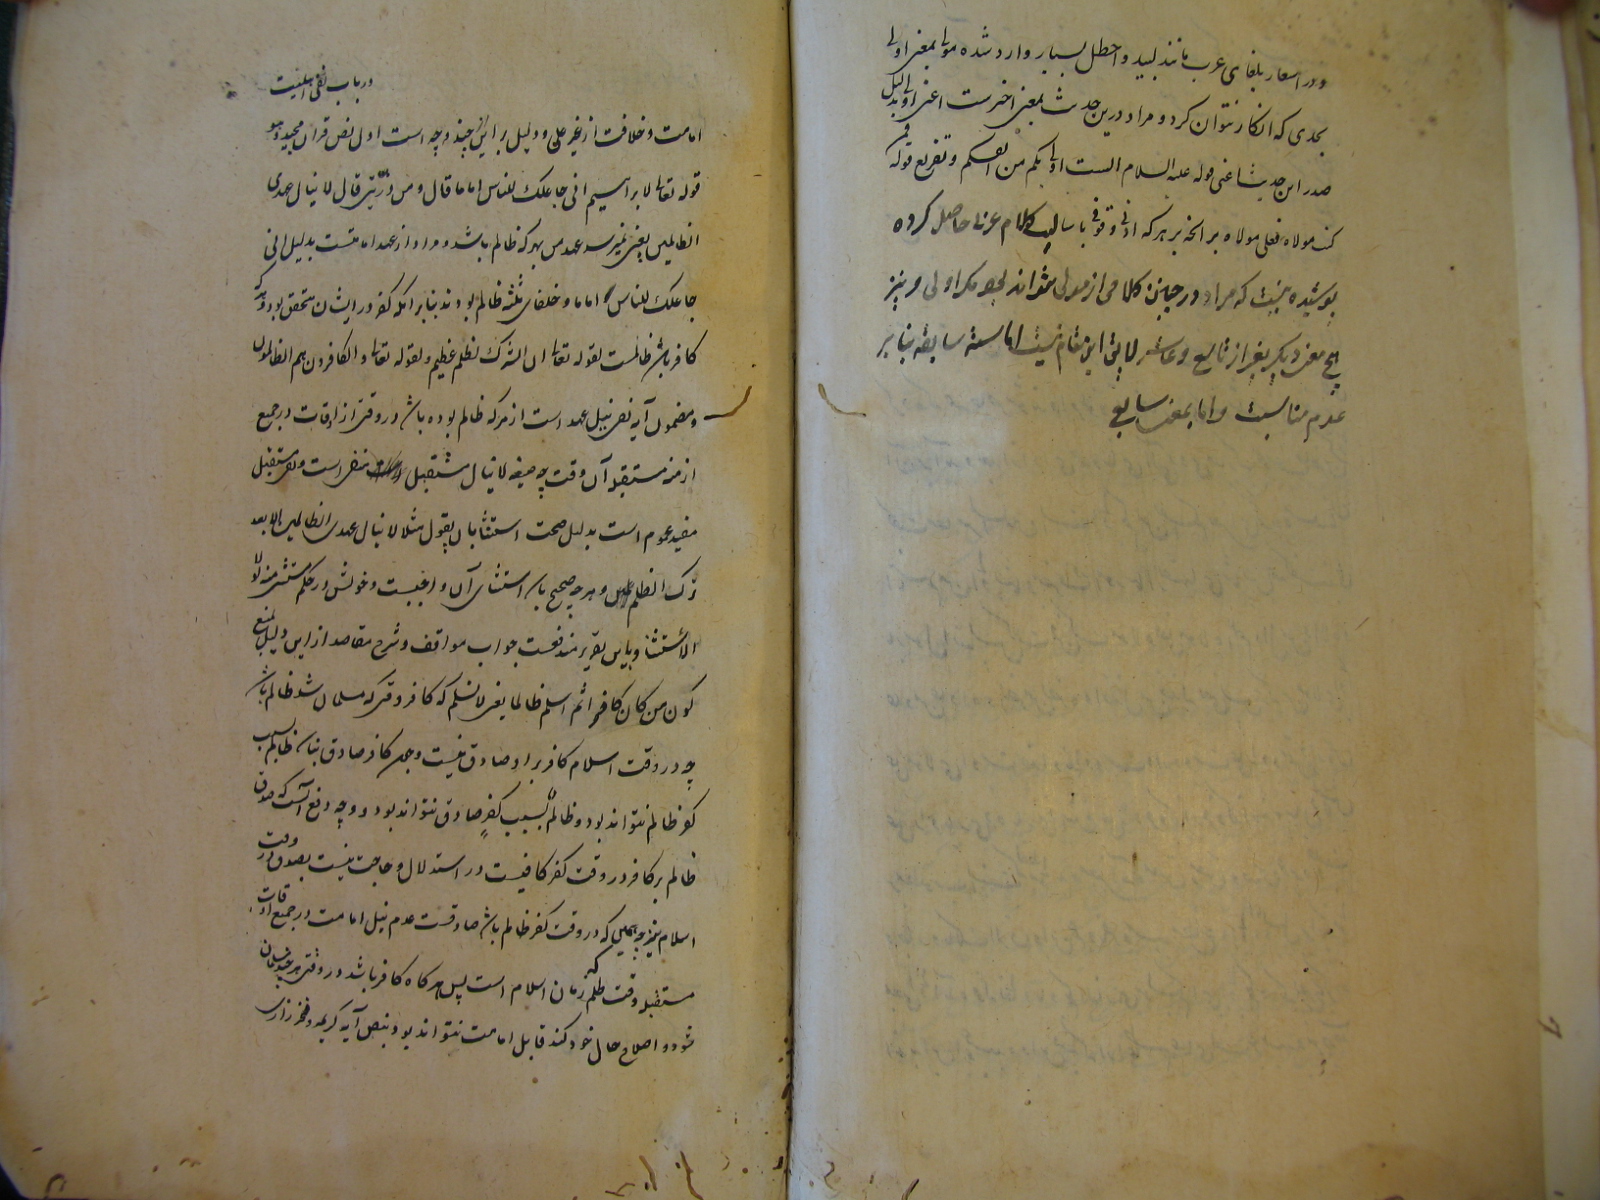 و در اشعار بلغای عرب مانند لبید و اخطل بسیار وارد شده مولی بمعنی اولی
بحدی که انکار نتوان کرد و مراد درین حدیث بمعنی اخیرست اعنی اولی بدلیل
صدر این حدیث اعنی قوله علیه السلام الست اولی بکم من انفسکم و تفریع قوله فمن
کنت مولاه فعلی مولاه بر انچه بر هر که ادنی وقوفی باسالیب کلام عرب حاصل کرده
پوشیده نیست که مراد در چنین کلامی از مولی نتواند بود مگر اولی و نیز
هیچ معنی دیگر بغیر از تاسع و عاشر لایق این مقام نیست اما سته سابقه بنابر
عدم مناسبت و اما بمعنی سابع
در باب نفی اهلیت
امامت و خلافت از غیر علی و دلیل بر این چند وجه است اول نص قران مجید و هو
قوله تعالی لابراهیم انی جاعلک للناس اماما قال و من ذریتی قال لا ینال عهدی
الظالمین یعنی نمیرسد عهد من بهر که ظالم باشد و مراد از عهد امامتست بدلیل انی
جاعلک للناس اماما و خلفای ثلثه ظالم بودند بنابر آنکه کفر در ایشان متحقق بود و هر که
کافر باشد ظالمست لقوله تعالی ان الشرک لظلم عظیم و لقوله تعالی و الکافرون هم الظالمون
و مضمون آیه نفی نیل عهد است از هر که ظالم بوده باشد در وقتی از اوقات در جمیع
ازمنه مستقبله آن وقت چه صیغه لا ینال مستقبل منفی است و نفی مستقبل
مفید عموم است بدلیل صحت استثنا بان یقول مثلا لا ینال عهدی الظالمین الا بعد
ترک الظلم و هر چه صحیح باشد استثنای آن واجبست دخولش در حکم مستثنی منه لولا
الاستثنا و باین تقریر مندفعست جواب مواقف و شرح مقاصد از این دلیل بمنع
کون من کان کافرا ثم اسلم ظالما یعنی لا نسلم که کافر وقتی که مسلمان شد ظالم باشد
چه در وقت اسلام کافر بر او صادق نیست و چون کافر صادق نباشد ظالم بسبب
کفر ظالم نتواند بود و ظالم بسبب کفر صادق نتواند بود و وجه دفع آنست که صدق
ظالم بر کافر در وقت کفر کافیست در استدلال و حاجت نیست بصدق در وقت
اسلام نیز چه همین که در وقت کفر ظالم باشد صادقست عدم نیل امامت در جمیع اوقات
مستقبله وقت ظلم که زمان اسلام است پس هر گاه کافر باشد در وقتی هر چند مسلمان
شود و اصلاح حال خود کند قابل امامت نتواند بود بنص آیه کریمه و فخر رازی